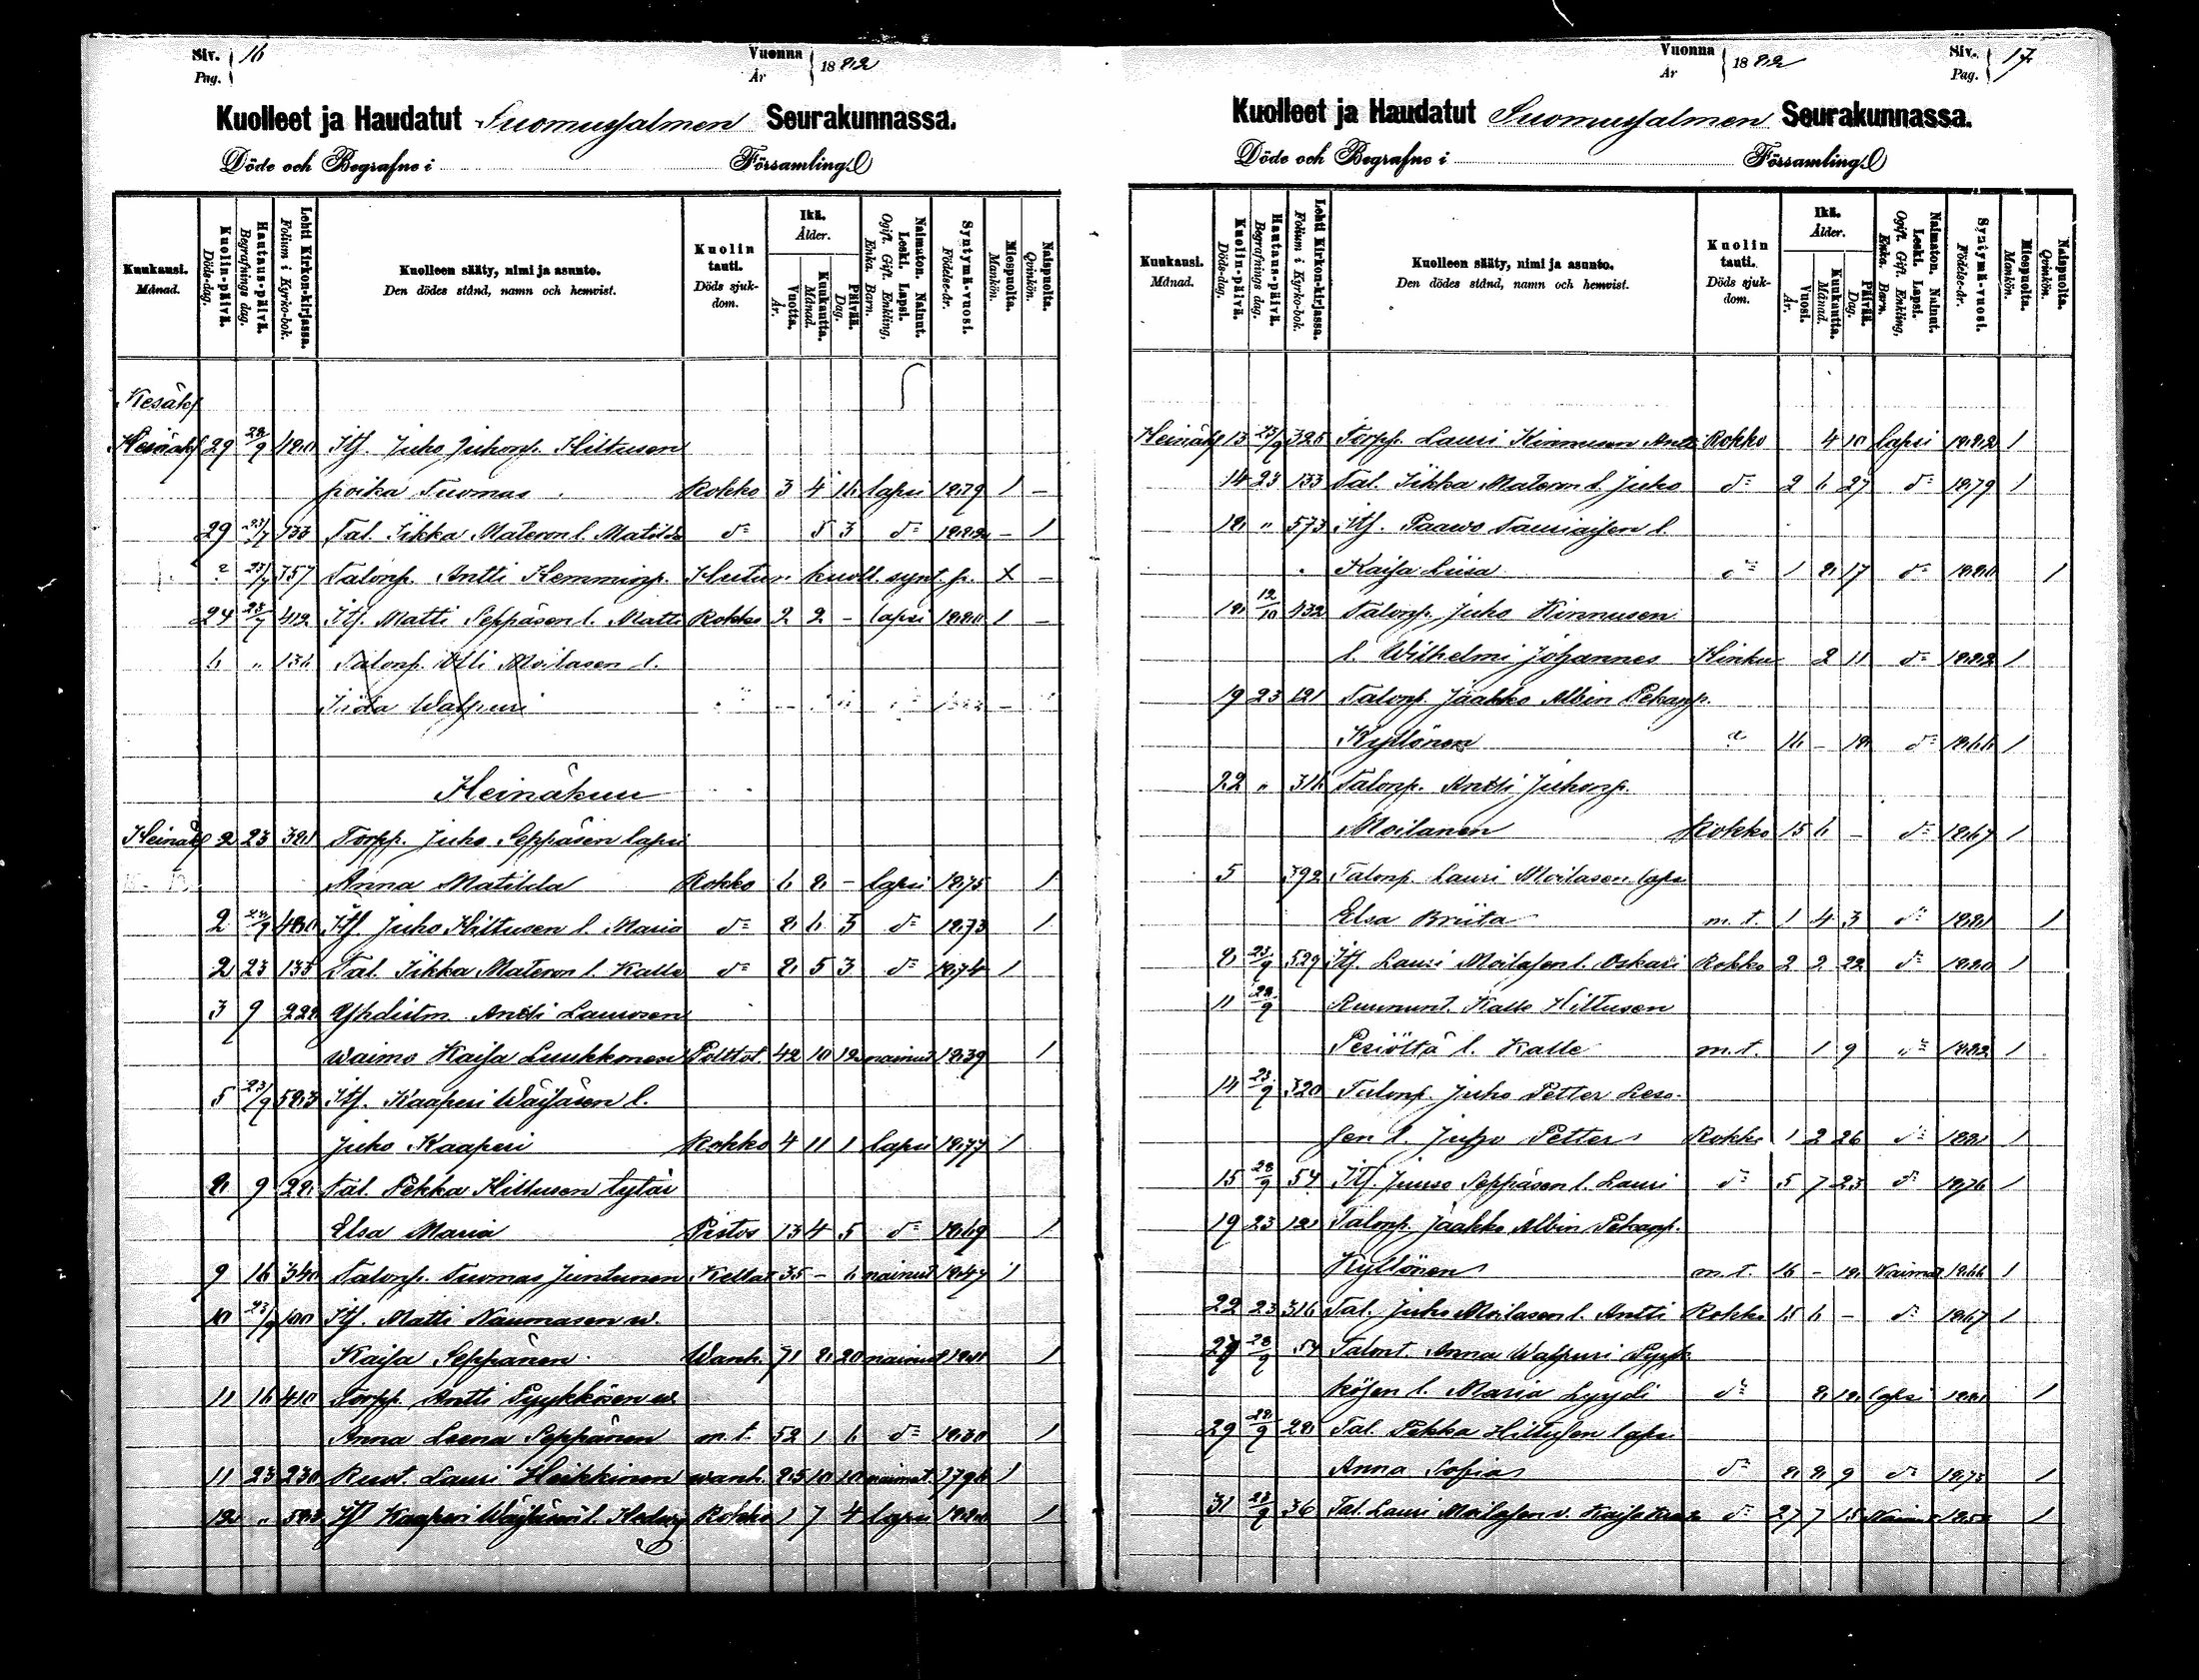 Siv. Pag. 16
Vuonna År 1882
Kuolleet ja Haudatut Suomussalmen Seurakunnassa.
Döde och Begrafne i Församling
Kuukausi. Månad.
Kuolin-päivä. Döds-dag.
Hautaus-päivä. Begrafnings dag.
Lehti Kirkon-kirjassa. Folium i Kyrko-bok.
Kuolleen sääty, nimi ja asunto. Den dödes stånd, namn och hemvist.
Kuolin tauti. Döds sjukdom.
Ikä. Ålder.
Vuotta. År.
Kuukautta. Månad.
Päivää. Dag.
Naimaton. Nainut. Leski. Lapsi. Ogift. Gift. Enkling, Enka. Barn.
Syntymä-vuosi. Födelse-år.
Miespuolta. Mankön.
Naispuolta. Qvinkön.
Kesäk
Heinäk 29 28/9 480 Itf. Juho Juhonp. Hiltusen
poika Tuomas Rokko 3 4 16 lapsi 1879 1 -
29 23/7 133 Tal. Iikka Materon l. Matilda d:o 5 3 d:o 1882 - 1
2 23/7 357 Talonp. Antti Hemminp. kuoll. synt. p. X -
24 23/7 412 Itf. Matti Seppäsen l. Matti Rokko 2 2 - lapsi 1880 1 -
6 „ 136 Talonp. Olli Moilasen l.
Iida Walpuri
Heinäkuu
Heinäk 2 23 381 Torpp. Juho Seppäsen lapsi
Anna Matilda Rokko 6 8 - lapsi 1875 1
2 28/9 480 Itf. Juho Hiltusen l. Maria d:o 8 6 3 d:o 1873 1
2 23 133 Tal. Iikka Materon l. Kalle d:o 8 5 3 d:o 1874 1
3 9 228 Yhdistm. Antti Laurosen
waimo Kaisa Luukkonen Polttot. 42 10 18 nainut 1839 1
5 23/9 583 Itf. Kaaperi Wäisäsen l.
Juho Kaaperi Rokko 4 11 1 lapsi 1877 1
8 9 28 Tal. Pekka Hiltusen tytär
Elsa Maria Pistos 13 4 5 d:o 1869 1
9 16 340 Talonp. Tuomas Juntunen 35 - 6 nainut 1847 1
10 23/9 100 Itf. Matti Naumasen w.
Kaisa Seppänen Wanh. 71 8 20 nainut 1
11 16 410 Torpp. Antti Pyykkösen w
Anna Leena Seppänen m.t. 52 1 6 d:o 1830 1
11 23 230 Ruot. Lauri Heikkinen wanh. 85 10 10 1796 1
12 „ 583 Itf Kaaperi Wäisäsen l. Hedvig Rokko 1 7 4 lapsi 1880 1
Siv. Pag. 17
Vuonna År 1882
Kuolleet ja Haudatut Suomussalmen Seurakunnassa.
Döde och Begrafne i Församling
Kuukausi. Månad.
Kuolin-päivä. Döds-dag.
Hautaus-päivä. Begrafnings dag.
Lehti Kirkon-kirjassa. Folium i Kyrko-bok.
Kuolleen sääty, nimi ja asunto. Den dödes stånd, namn och hemvist.
Kuolin tauti. Döds sjukdom.
Ikä. Ålder.
Vuosi. År.
Kuukautta. Månad.
Päivää. Dag.
Naimaton. Nainut. Leski. Lapsi. Ogift. Gift. Enkling, Enka. Barn.
Syntymä-vuosi. Födelse-år.
Miespuolta. Mankön.
Naispuolta. Qvinkön.
Heinäk 13 23/9 325 Torpp. Lauri Kinnusen Antti Rokko 4 10 lapsi 1882 1
14 23 133 Tal. Iikka Materon l. Juho d:o 2 6 27 d:o 1879 1
18 „ 573 Itf. Paawo Tauriaisen l.
Kaisa Liisa d:o 1 8 17 d:o 1880 1
18 12/10 432 Talonp. Juho Kinnusen
l. Wilhelmi Johannes Hinku 2 11 d:o 1882 1
19 23 121 Talonp. Jaakko Albin Pekanp.
Kyllönen 16 - 18 d:o 1866 1
22 „ 316 Talonp. Antti Juhonp.
Moilanen Rokko 15 6 - d:o 1867 1
5 392 Talonp. Lauri Moilasen lapsi
Elsa Briita m.t. 1 4 3 d:o 1881 1
8 23/9 529 Itf. Lauri Moilasen l. Oskari Rokko 2 2 22 d:o 1880 1
11 28/9 Ruununt. Kalle Hiltusen
l. Kalle m.t. 1 9 1882 1
14 23/9 320 Talonp. Juho Petter Leso-
sen l. Juho Petter Rokko 1 2 26 d:o 1881 1
15 28/9 54 Itf. Juuso Seppäsen l. Lauri d:o 5 7 23 d:o 1876 1
19 23 121 Talonp. Jaakko Albin Pekanp.
Kyllönen m.t. 16 - 18 Naimat 1866 1
22 23 316 Tal. Juho Moilasen l. Antti Rokko 15 6 - d:o 1867 1
29 28/9 54 Talont. Anna Walpuri Pyyk
kösen l. Maria Lyydi d:o 8 18 lapsi 1881 1
29 28/9 28 Tal. Pekka Hiltusen lapsi
Anna Sofia d:o 8 8 9 d:o 1873 1
31 23/9 36 Tal. Lauri Moilasen v. Kaisa d:o 27 7 15 1